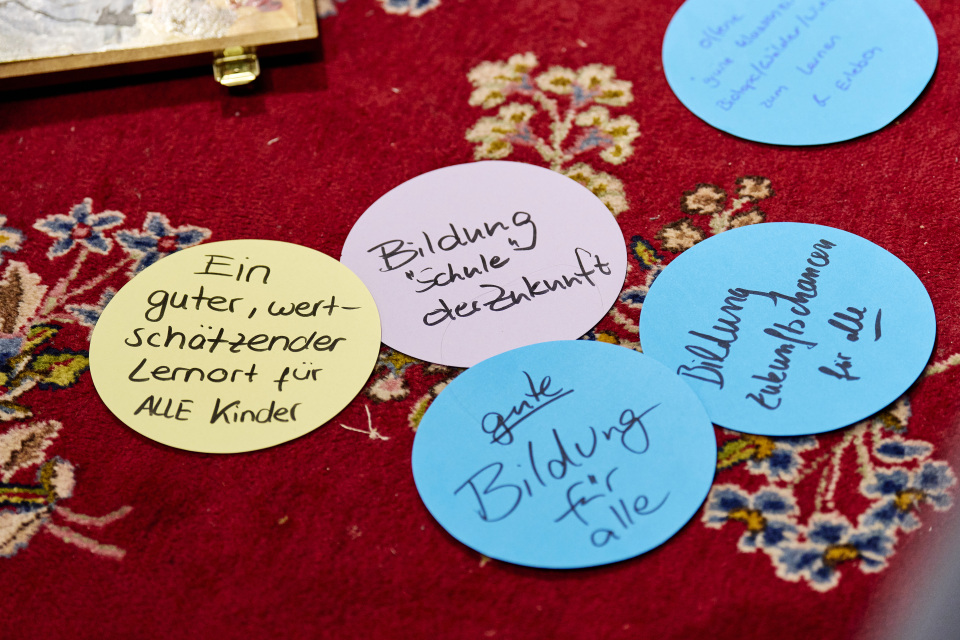 offene
gute
zum Lernen
& Erleben
Bildung
"Schule"
der Zukunft
Ein
guter, wert-
schätzender
Lernort für
ALLE Kinder
Bildung
Zukunftschancen
für alle
gute
Bildung
für
alle